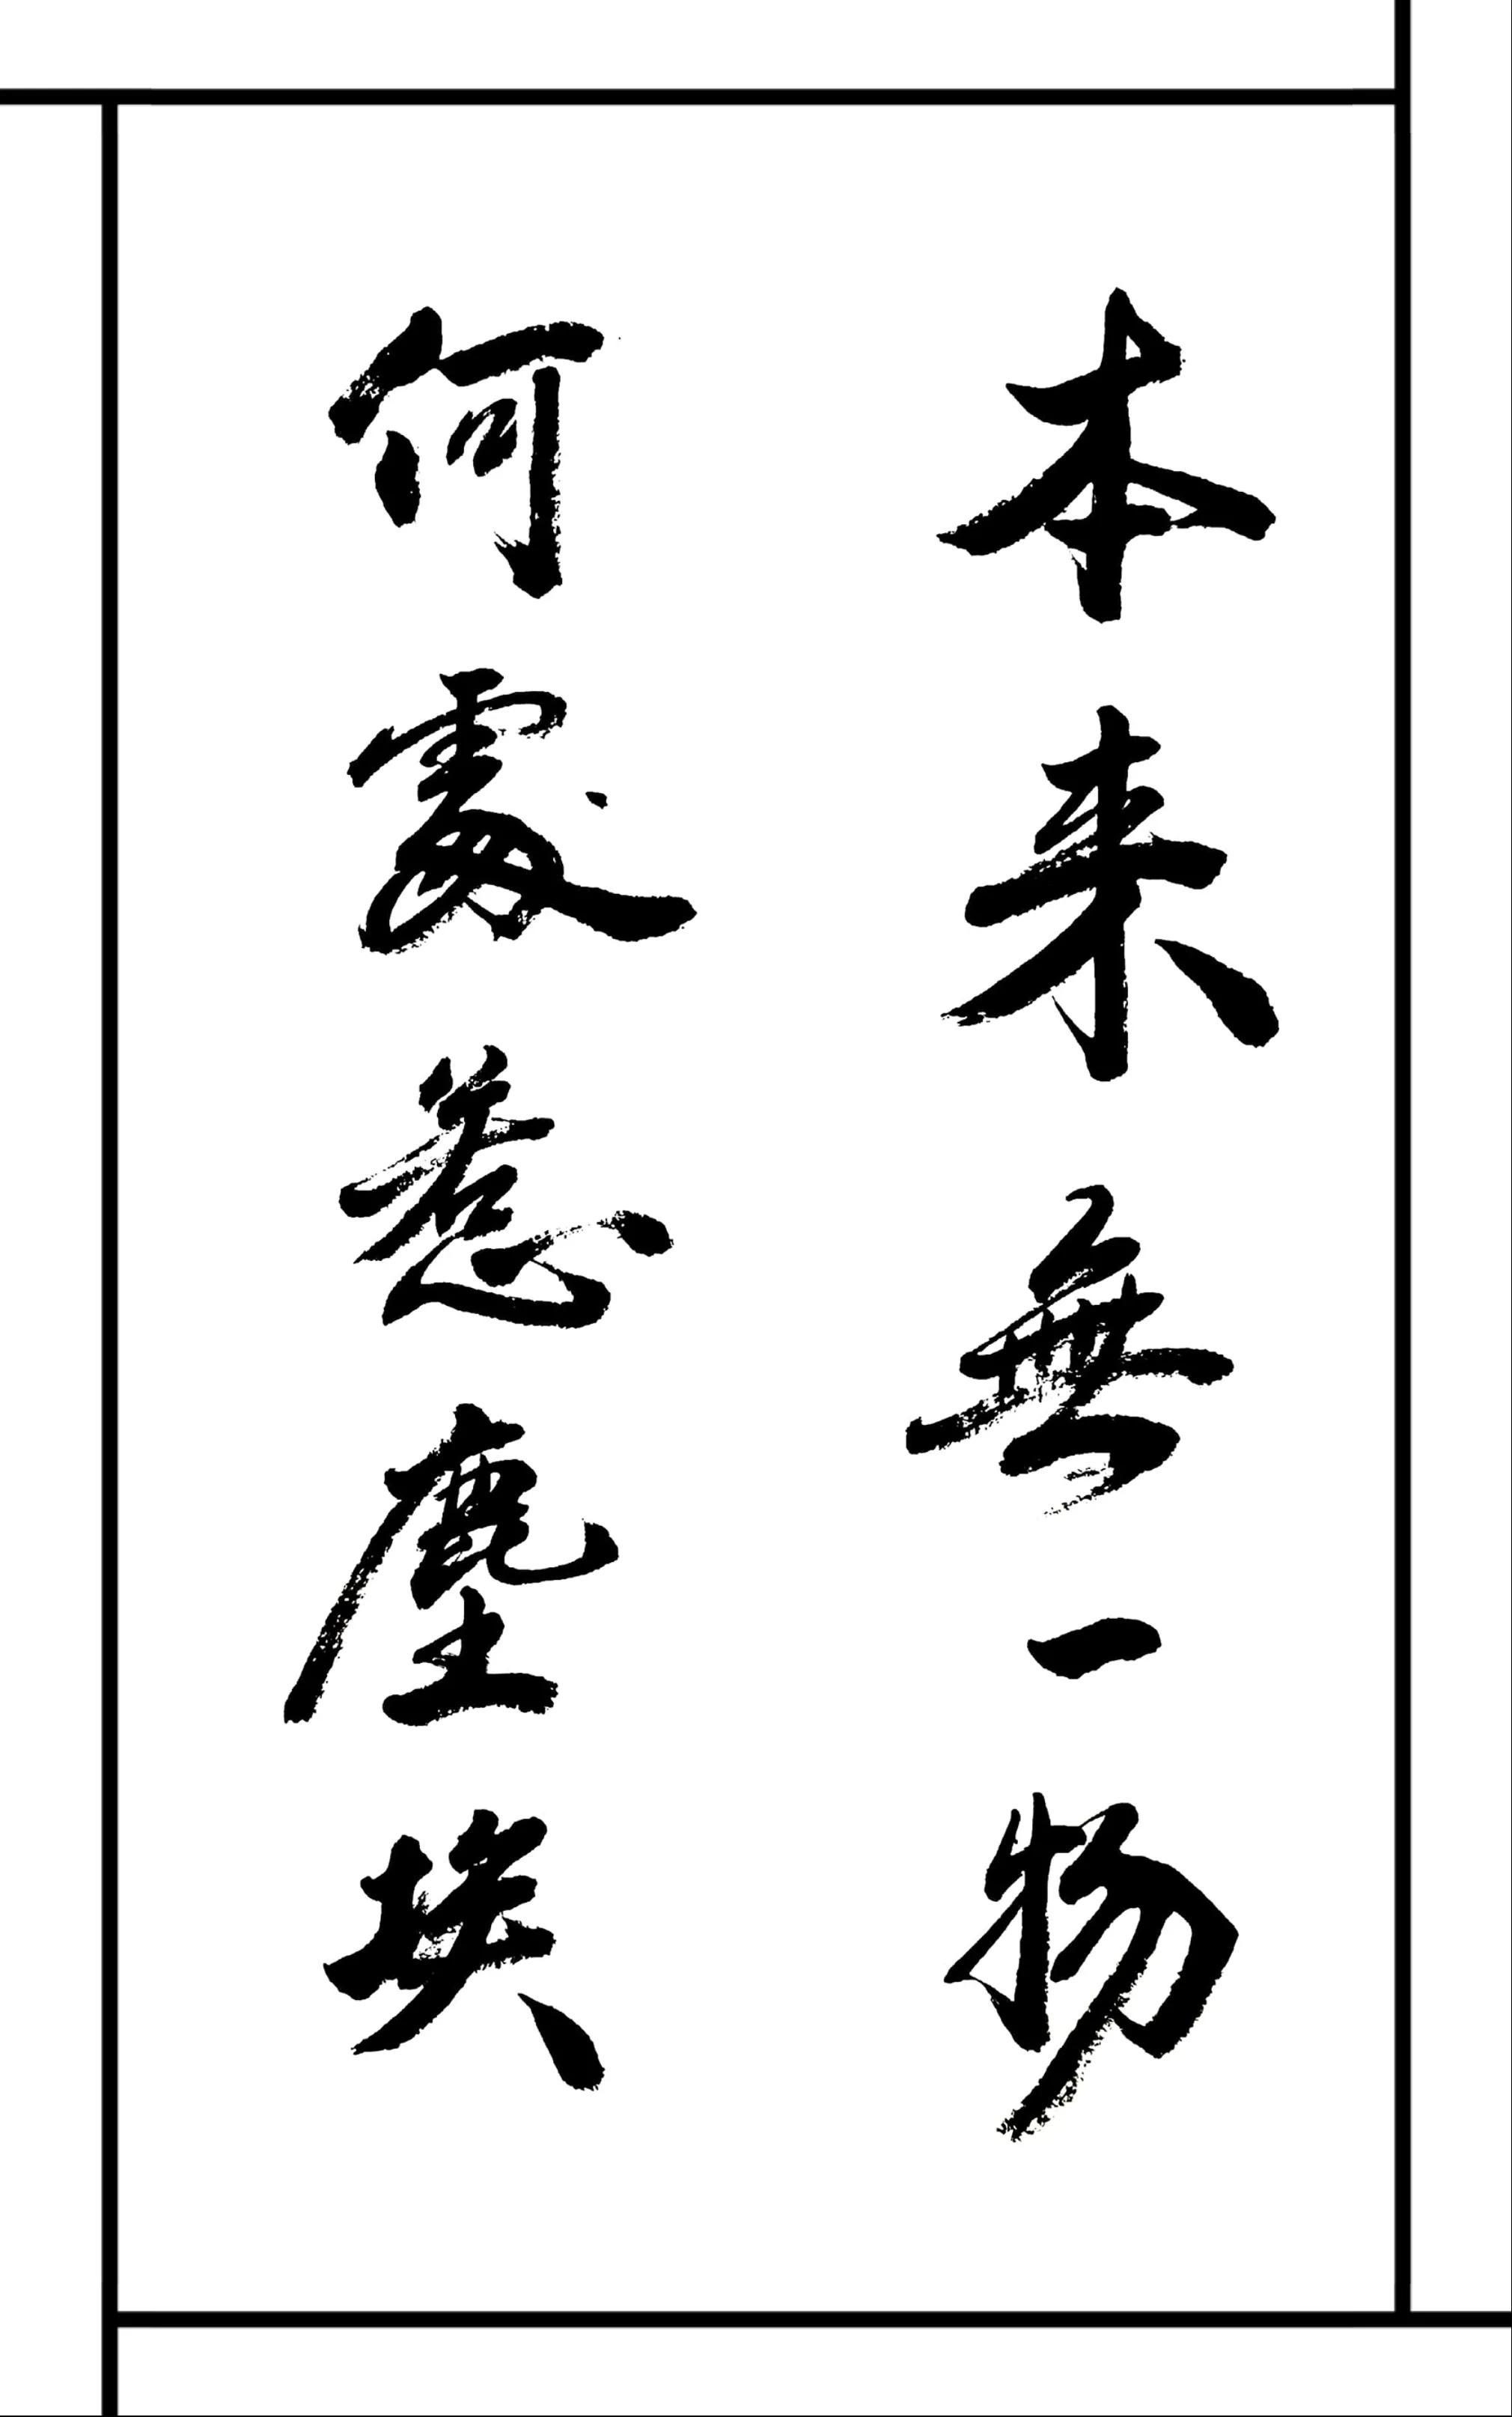 本来無一物
何處惹塵埃